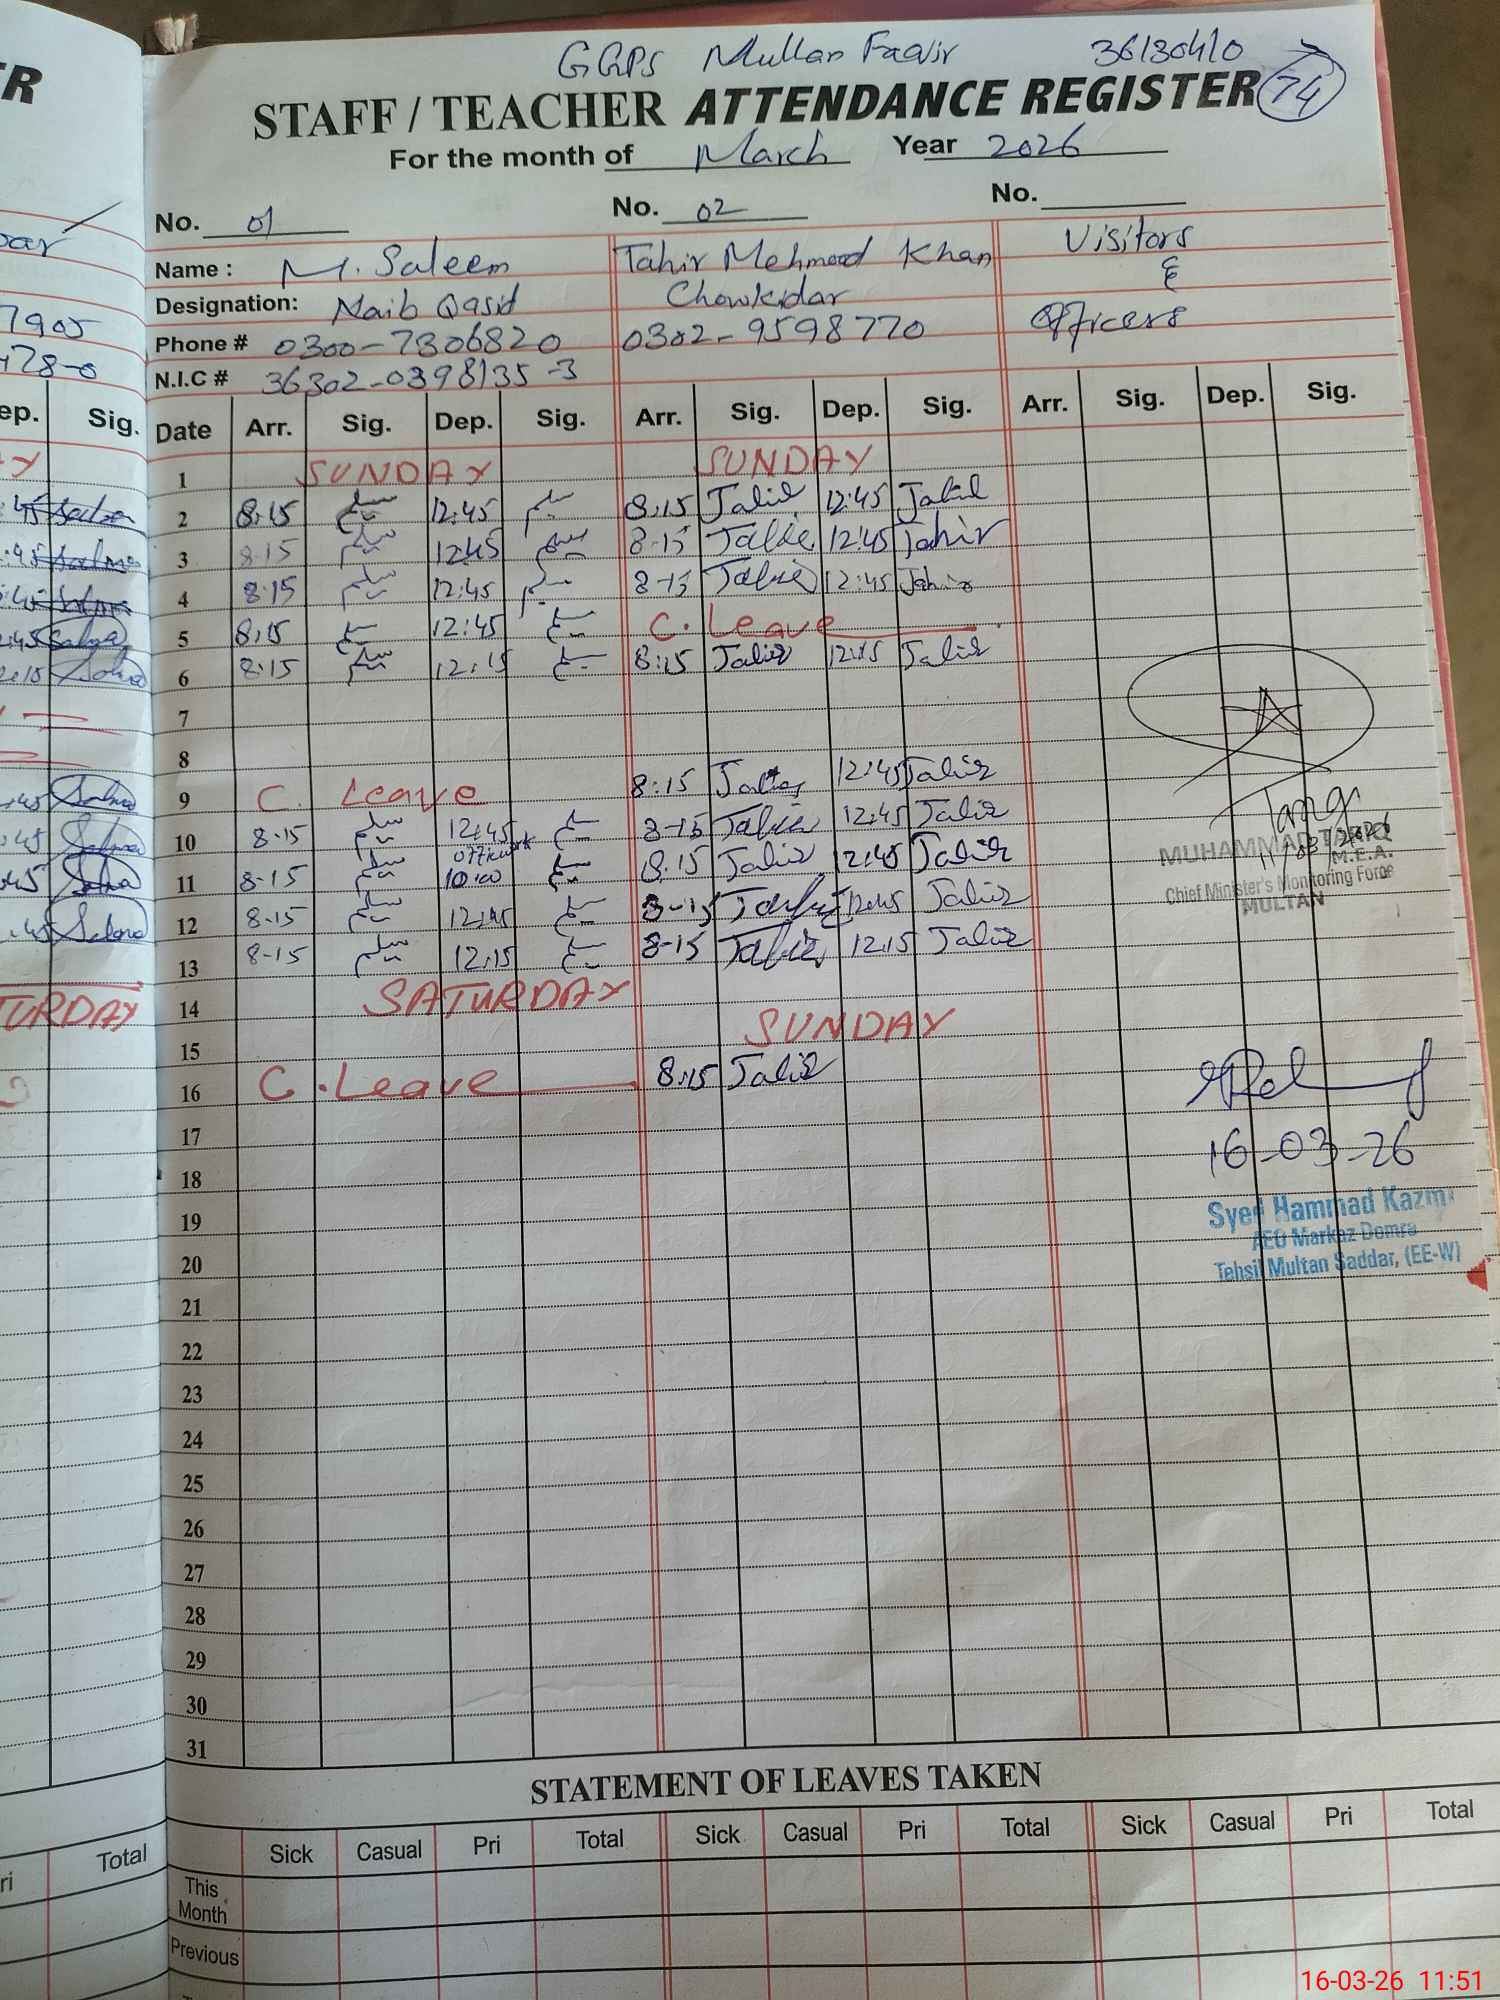 GGPS Mullan Faqir 36130410
STAFF / TEACHER ATTENDANCE REGISTER 74
For the month of March Year 2026
No. 01 No. 02 No.
Name : M. Saleem Tahir Mehmood Khan Visitors
&
Designation: Naib Qasid Chowkidar Officers
Phone # 0300-7306820 0302-9598770
N.I.C # 36302-0398135-3
Date Arr. Sig. Dep. Sig. Arr. Sig. Dep. Sig. Arr. Sig. Dep. Sig.
1 SUNDAY SUNDAY
2 8:15 سلیم 12:45 سلیم 8:15 Tahir 12:45 Tahir
3 8-15 سلیم 12:45 سلیم 8-15 Tahir 12:45 Tahir
4 8:15 سلیم 12:45 سلیم 8-15 Tahir 12:45 Tahir
5 8:15 سلیم 12:45 سلیم C. Leave
6 8:15 سلیم 12:15 سلیم 8:15 Tahir 12:15 Tahir
7
8
9 C. Leave 8:15 Tahir 12:45 Tahir
10 8-15 سلیم 12:45 سلیم 8-15 Tahir 12:45 Tahir
11 8-15 سلیم 10:00 سلیم 8.15 Tahir 12:45 Tahir
12 8-15 سلیم 12:45 سلیم 8-15 Tahir 12:45 Tahir
13 8-15 سلیم 12:15 سلیم 8-15 Tahir 12:15 Tahir
14 SATURDAY
15 SUNDAY
16 C. Leave 8:15 Tahir
17
18
19
20
21
22
23
24
25
26
27
28
29
30
31
Tariq
MUHAMMAD TARIQ
M.E.A.
Chief Minister's Monitoring Force
MULTAN
16-03-26
Syed Hammad Kazmi
AEO Markaz Domra
Tehsil Multan Saddar, (EE-W)
STATEMENT OF LEAVES TAKEN
Sick Casual Pri Total Sick Casual Pri Total Sick Casual Pri Total
This Month
Previous
16-03-26 11:51